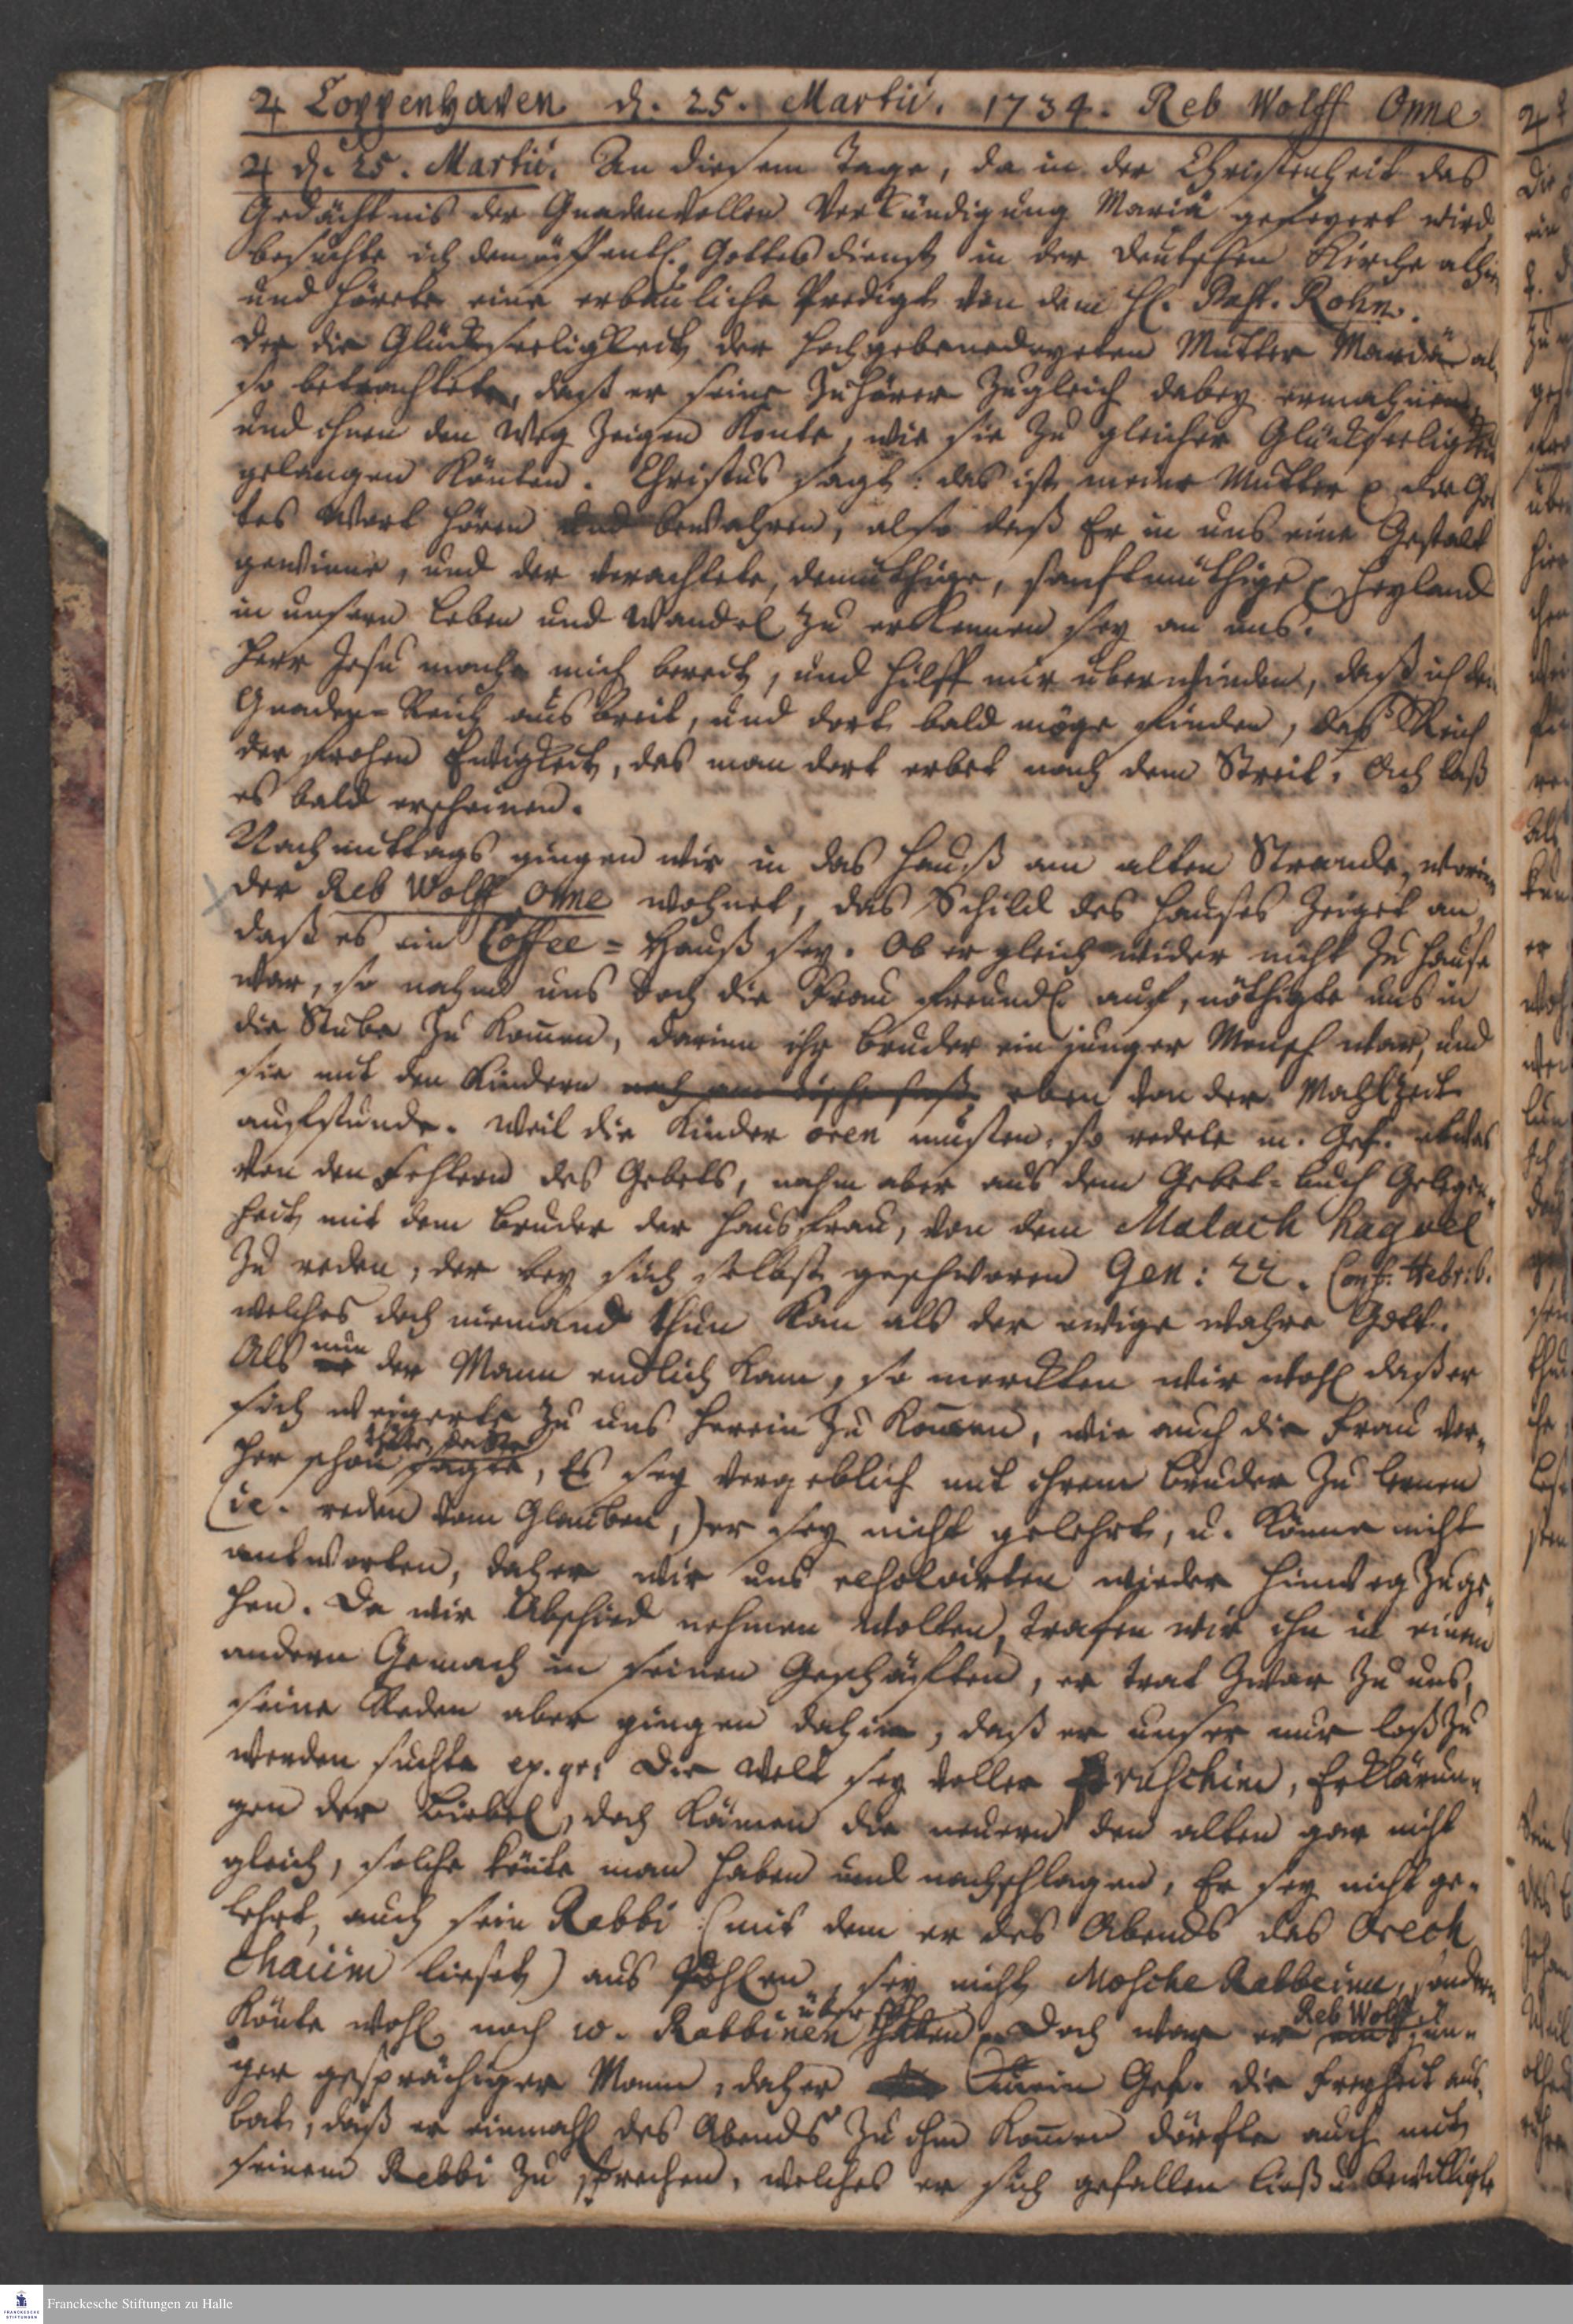 ♃ Coppenhaven d. 25. Martii. 1734. Reb Wolff Onne
♃ d. 25. Martii. An diesem Tage, da in der Christenheit das
Gedächtnis der Gnadenvollen Verkündigung Mariä gefeyert wird,
besuchte ich den öffentl. Gottesdienst in der deutschen Kirche alhier
und hörete eine erbauliche Predigt von dem H. Past. Rohn.
der die Glückseeligkeit der hochgebenedeyeten Mutter Mariä al-
so betrachtete, daß er seine Zuhörer zugleich dabey ermahnen,
und ihnen den Weg zeigen konte, wie sie zu gleicher Glückseeligkeit
gelangen könten. Christus sagt: das ist meine Mutter die Got
tes Wort hören und bewahren, also daß Er in uns eine Gestalt
gewinne, und der verachtete, demüthige, sanftmüthige Heyland
in unserm Leben und Wandel zu erkennen sey an uns.
Herr Jesu mache mich bereit, und hilff mir überwinden, daß ich dein
Gnaden-Reich ausbreit, und dort bald möge finden, das Reich
der frohen Ewigkeit, das man dort erbet nach dem Streit, Ach laß
es bald erscheinen.
Nachmittags gingen wir in das Hauß am alten Strande, worin
der Reb Wolff Onne wohnet, das Schild des Hauses zeiget an,
daß es ein Coffee-Hauß sey. Ob er gleich wider nicht zu Hause
war, so nahm uns doch die Frau freundl. auf, nöthigte uns in
die Stube zu kommen, darinn ihr Bruder ein junger Mensch war, und
sie mit den Kindern noch am Tische saß eben von der Mahlzeit
aufstunde. Weil die Kinder oren musten, so redete m. Gef. etwas
von den Fehlern des Gebets, nahm aber aus dem Gebet-Buch Gelegen-
heit mit dem Bruder der Hausfrau, von dem Malach hagoel
zu reden, der bey sich selbst geschworen Gen: 22. Conf. Hebr: 6.
welches doch niemand thun kan als der ewige wahre Gott.
Als nun der Mann endlich kam, so merckten wir wohl daß er
sich weigerte zu uns herein zu kommen, wie auch die Frau vor-
her schon sagte, Es sey vergeblich mit ihrem Bruder zu lernen
(ie. reden vom Glauben,) er sey nicht gelehrt, u. könne nicht
antworten, daher wir uns resolvirten wieder hinweg zuge-
hen. Da wir Abschied nehmen wolten, trafen wir ihn in einem
andern Gemach in seinen Geschäfften, er trat zwar zu uns,
seine Reden aber gingen dahin, daß er unser nur loß zu
werden suchte ex. gr. Die Welt sey voller Peruschim, Erklärun-
gen der Biebel, doch kämen die neuern den alten gar nicht
gleich, solche könte man haben und nachschlagen, Er sey nicht ge-
lehrt, auch sein Rabbi (mit dem er des Abends das Orech
chaiim lieset) aus Pohlen, sey nicht Mosche Rabbeinu, sondern
könte wohl noch 10. Rabbinen über sich haben. Doch war er Reb Wolff ein jun-
ger gesprächiger Mann, daher mein Gef. die Freyheit aus-
bat, daß er einmahl des Abends zu ihm kommen dörfte auch mit
seinem Rebbi zu sprechen, welches er sich gefallen ließ u. bewilligte
Franckesche Stiftungen zu Halle